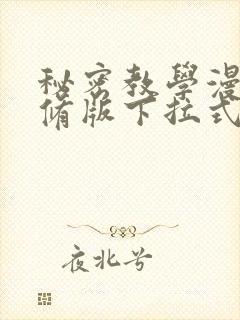 秘密教學漫
脩版下拉式
夜北兮